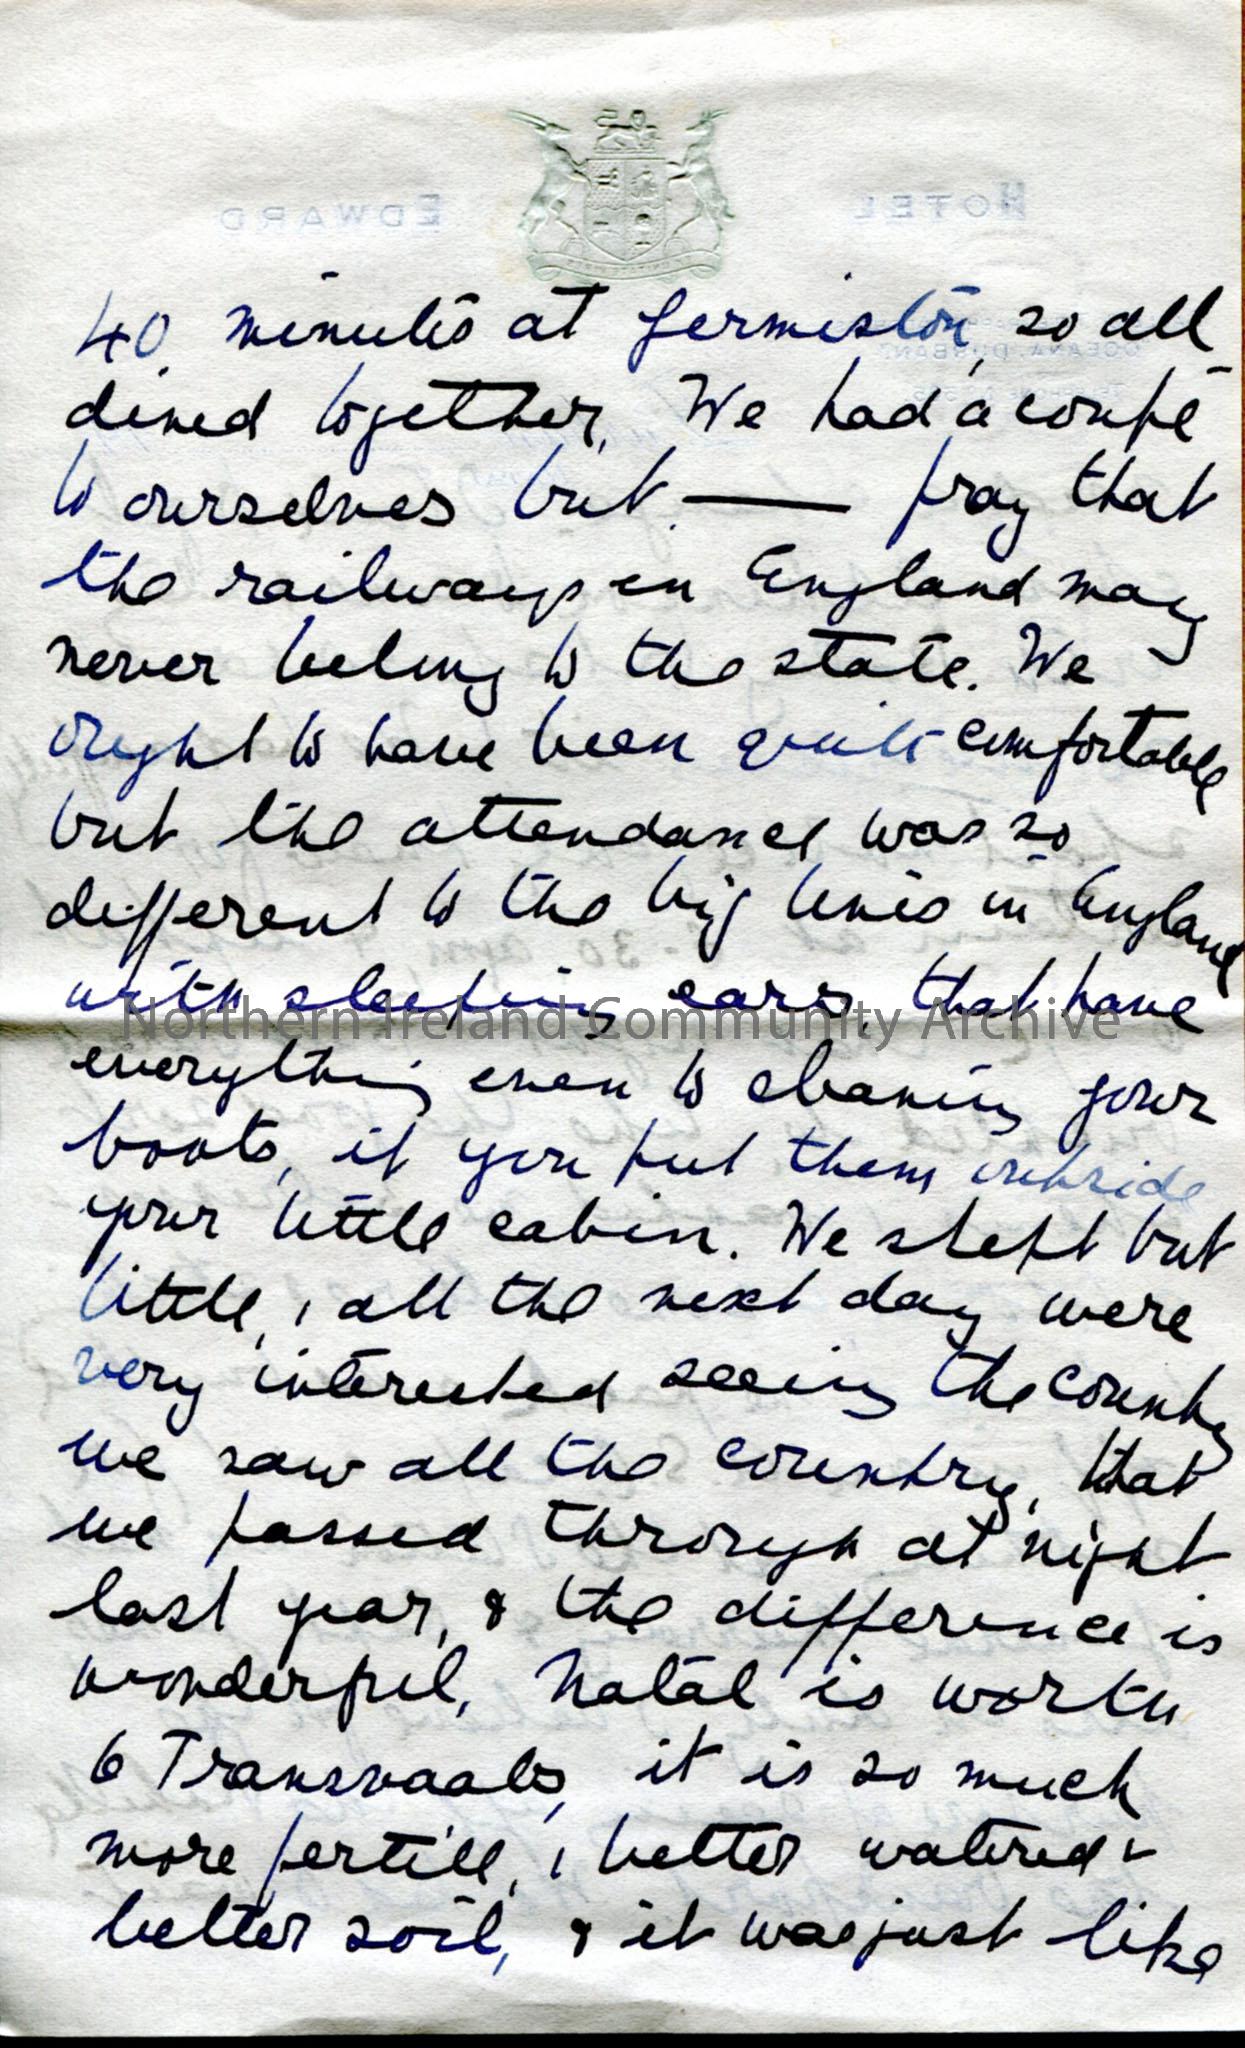 HOTEL EDWARD
40 minutes at Germiston, so all
dined together. We had a coupé
to ourselves but — pray that
the railways in England may
never belong to the state. We
ought to have been quite comfortable
but the attendance was so
different to the big lines in England
with sleeping cars, that have
Northern Ireland Community Archive
everything even to cleaning your
boots, if you put them outside
your little cabin. We slept but
little, & all the next day were
very interested seeing the country
we saw all the country, that
we passed through at night
last year, & the difference is
wonderful. Natal is worth
6 Transvaals, it is so much
more fertile, & better watered &
better soil, & it was just like